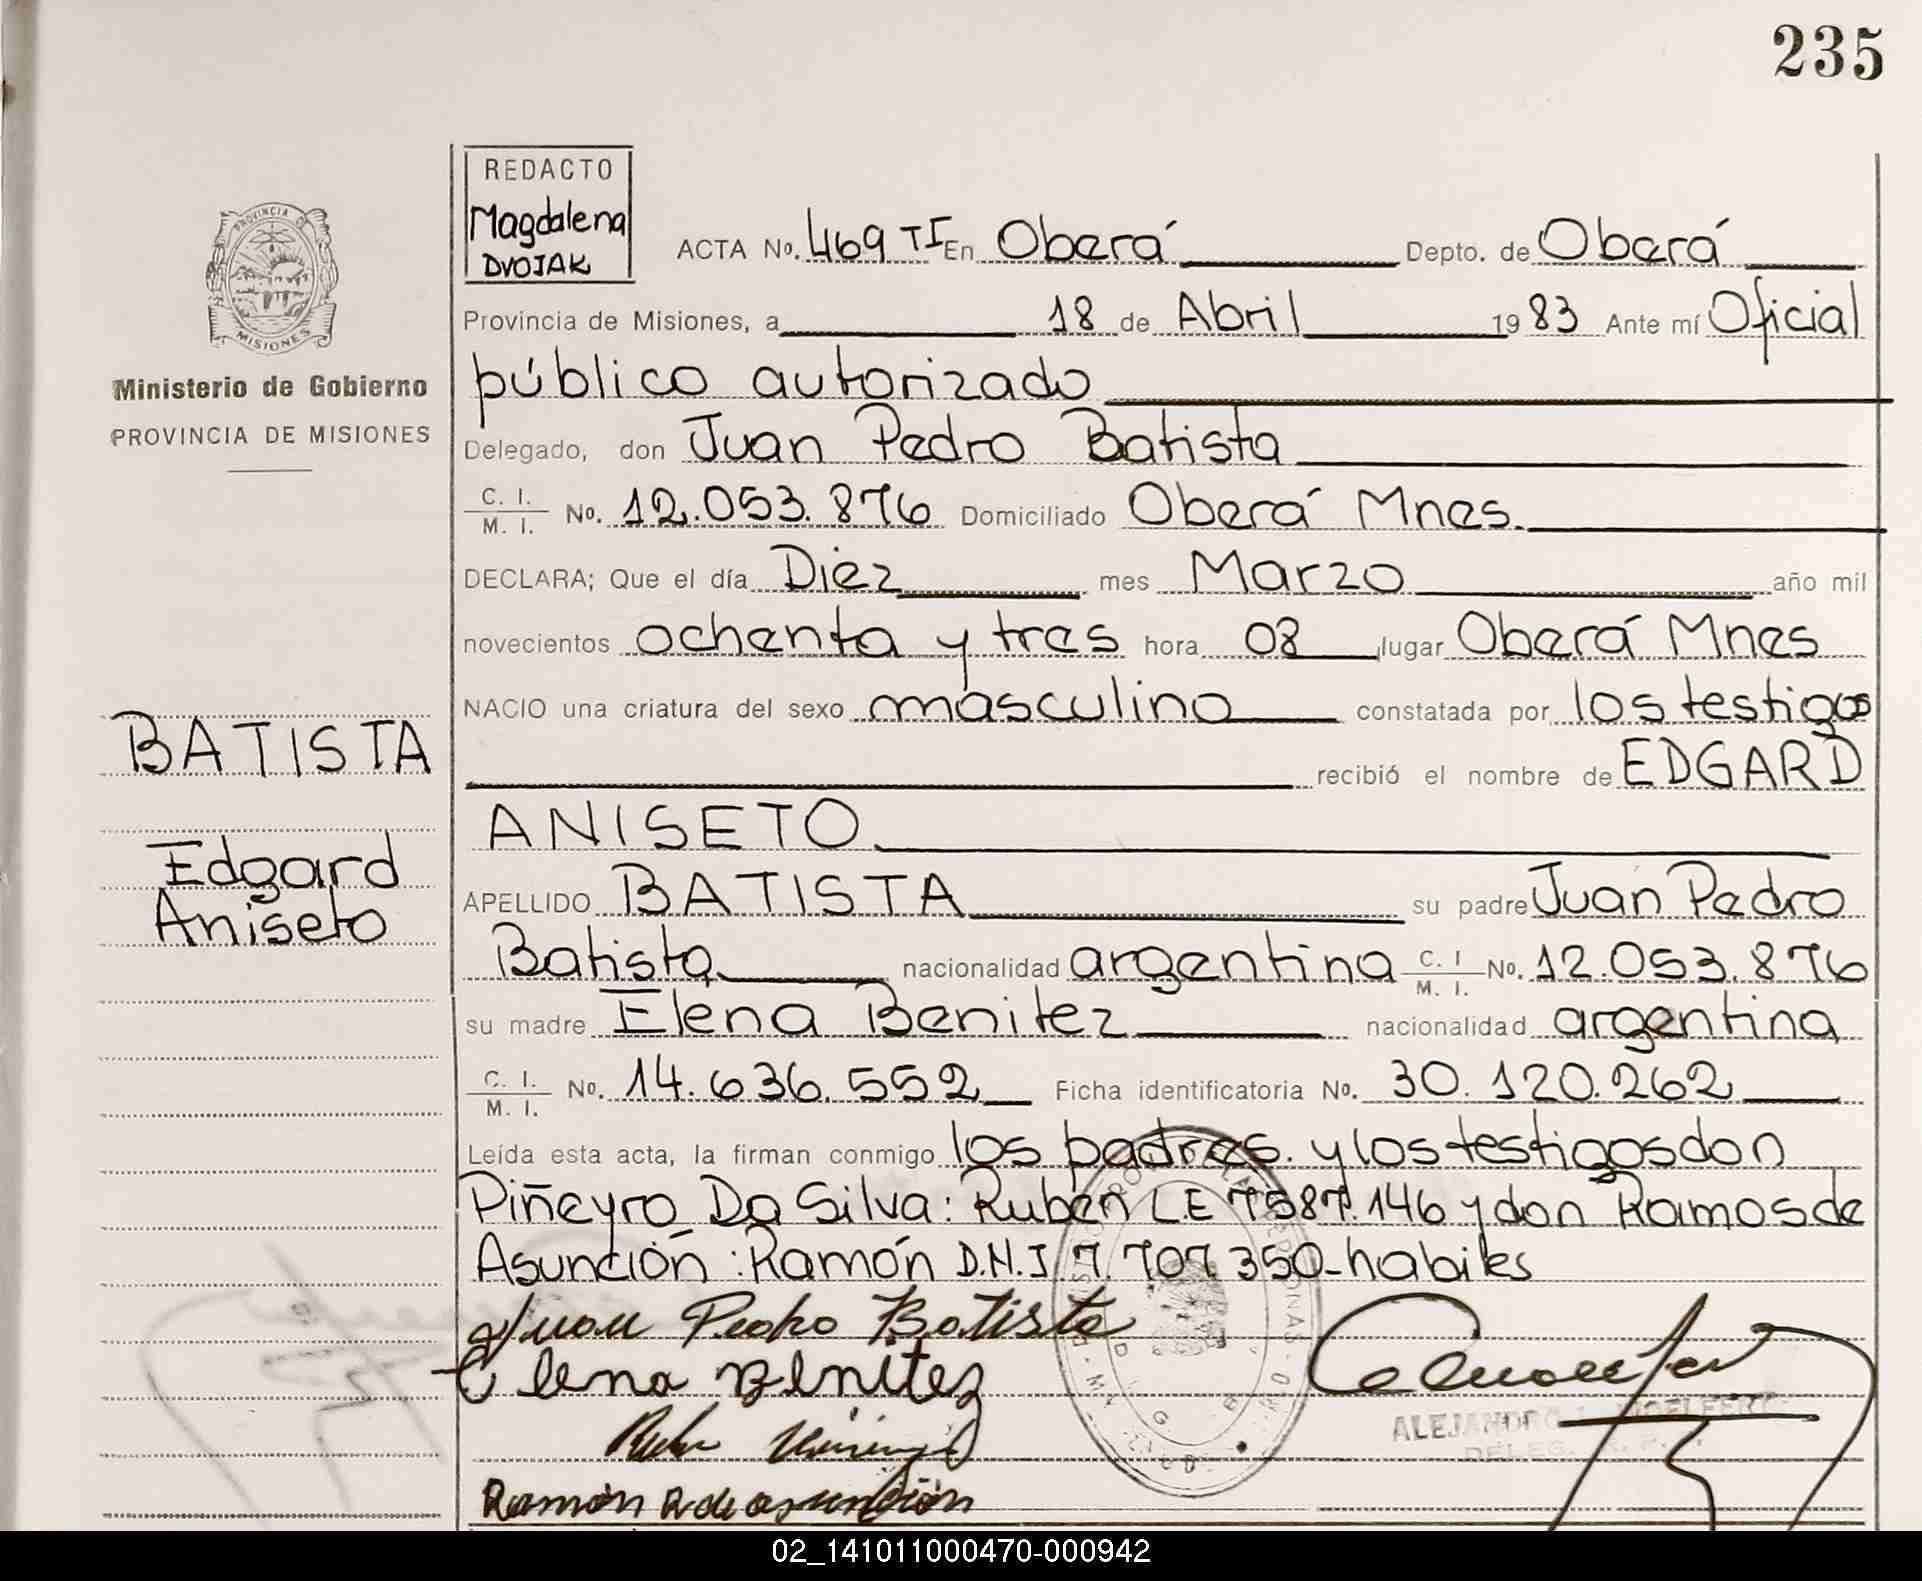 235
REDACTO
Magdalena
DVOJAK
PROVINCIA DE
MISIONES
Ministerio de Gobierno
PROVINCIA DE MISIONES
ACTA No. 469 TI En Oberá Depto. de Oberá
Provincia de Misiones, a 18 de Abril 1983 Ante mí Oficial
público autorizado
Delegado, don Juan Pedro Batista
C. I. / M. I. No. 12.053.876 Domiciliado Oberá Mnes.
DECLARA; Que el día Diez mes Marzo año mil
novecientos ochenta y tres hora 08 lugar Oberá Mnes
NACIO una criatura del sexo masculino constatada por los testigos
BATISTA
recibió el nombre de EDGARD
ANISETO
Edgard
Aniseto
APELLIDO BATISTA su padre Juan Pedro
Batista nacionalidad argentina C. I / M. I. No. 12.053.876
su madre Elena Benitez nacionalidad argentina
C. I. / M. I. No. 14.636.552 Ficha identificatoria No. 30.120.262
Leída esta acta, la firman conmigo los padres. y los testigos don
Piñeyro Da Silva: Rubén L.E 7587.146 y don Ramos de
Asunción: Ramón D.N.I 7.707.350-habiles
Juan Pedro Batista
Elena Benitez
Ramón R de asunción
ALEJANDRO
DELEG. R. P.
02_141011000470-000942